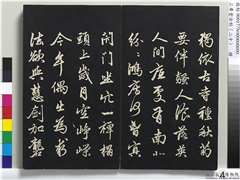 獨依古寺種秋菊
要伴騷人飡落英
人間底處有南北
紛〻鴻雁何曾冥
閉門坐穴一禪榻
頭上歲月空崢嶸
今年偶出為求
法欲與慧劍加礱